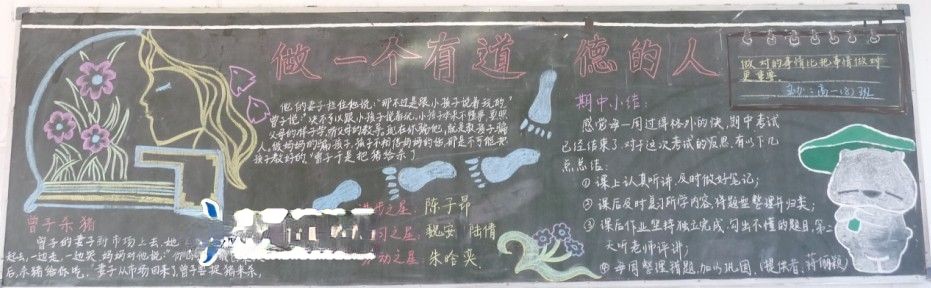 做一个有道德的人
做对的事情比把事情做对
更重要
主办：高一(8)班
曾子杀猪
曾子的妻子到市场上去，她
起去，一边走，一边哭，妈妈对他说：
后，杀猪给你吃，"妻子从市场回来了，曾子要捉猪来杀，
他的妻子拦住他说："那不过是跟小孩子说着玩的，"
曾子说："决不可以跟小孩子说着玩，小孩子本来不懂事，要照
父母的样子学，听父母的教导，现在你骗他，就是教孩子骗
人，做妈妈的骗孩子，孩子不相信妈妈的话，那是不可能把
孩子教好的"曾子于是把猪给杀了
进步之星：陈子昂
习之星：魏安 陆倩
动之星：朱哈奕
期中小结：
感觉每一周过得格外的快，期中考试
已经结束了，对于这次考试的反思，有以下几
点总结：
①课上认真听讲，及时做好笔记；
②课后及时复习所学内容，错题整理并归类；
③课后作业坚持独立完成，勾出不懂的题目，第二
天听老师评讲；
④每周整理错题，加以巩固，(提供者：蒋丽颖)